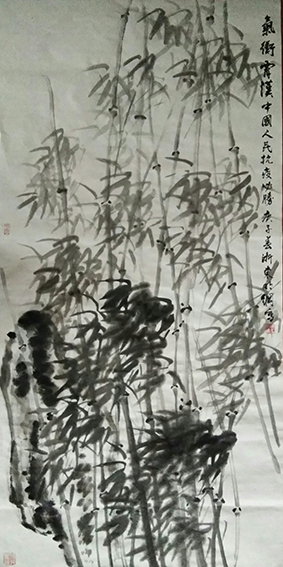 氣衝霄漢中國人民抗疫必勝庚子春浙東